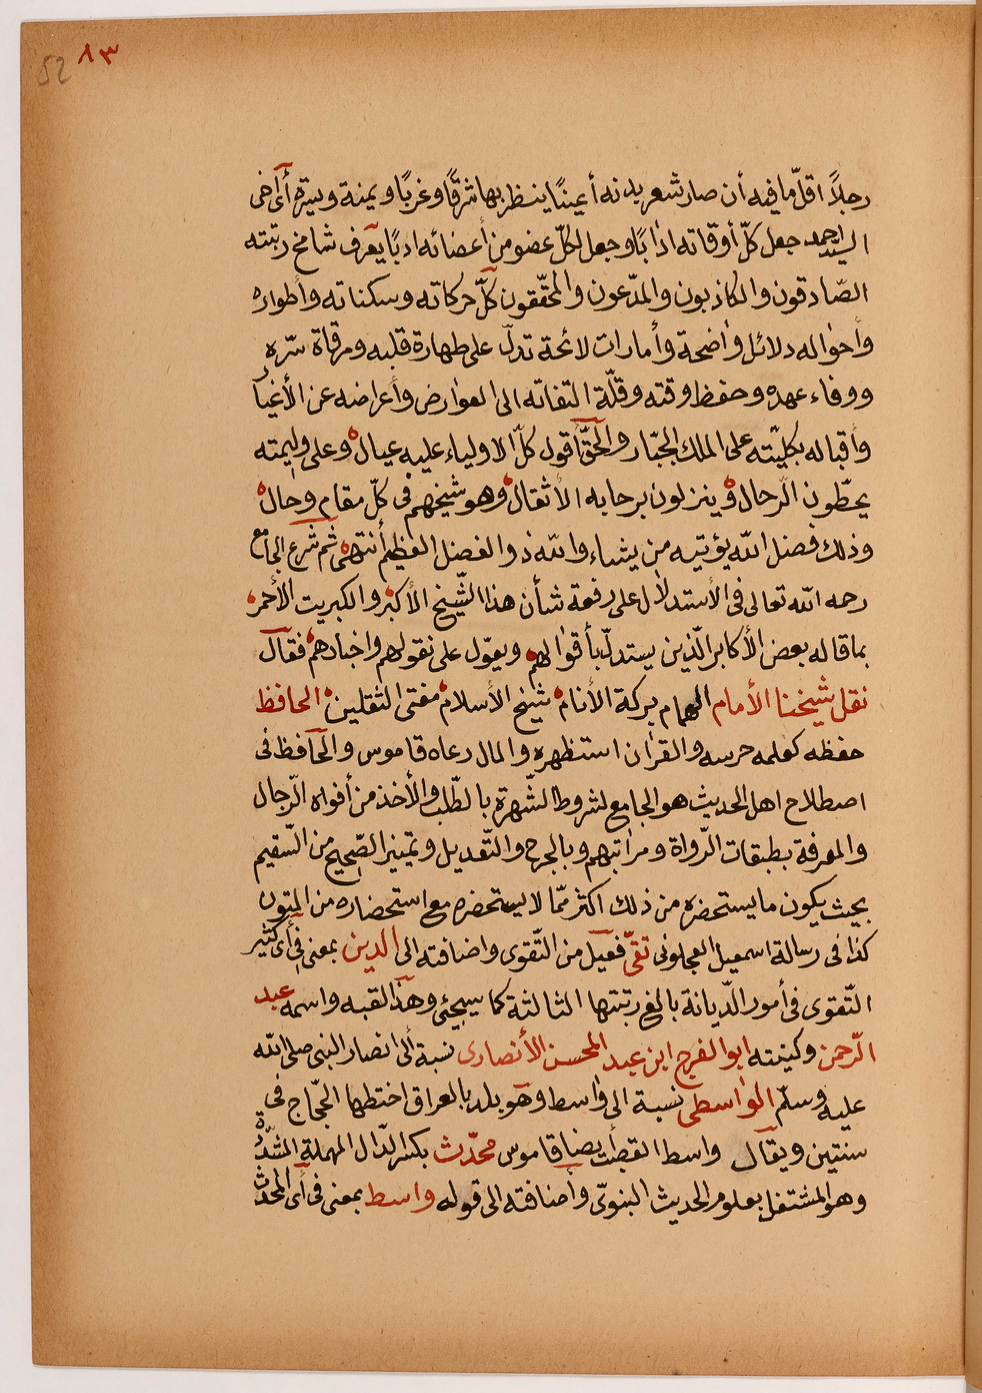 52 ٨٣
رجلاً اقلّ ما فيه أن صار شعر بدنه أعينًا ينظر بها شرقًا وغربًا ويمنة ويسرة أى أخى
السيد احمد جعل كلّ أوقاته ادابًا وجعل لكلّ عضو من أعضائه ادبًا يعرف شامخ رتبته
الصّادقون والكاذبون والمدّعون والمحقّقون كلّ حركاته وسكناته وأطواره
وأحواله دلائل واضحة وأمارات لائحة تدلّ على طهارة قلبه ومرقاة سرّه
ووفاء عهده وحفظ وقته وقلّة التفاته الى العوارض وأعراضه عن الأغيار
وأقباله بكليّته على الملك الجبّار والحقّ أقول كلّ الاولياء عليه عيال وعلى وليمته
يحطّون الرّحال وينزلون برحابه الأثقال وهو شيخهم فى كلّ مقام وحال
وذلك فضل الله يؤتيه من يشاء والله ذو الفضل العظيم أنتهى ثم شرع الجامع
رحمه الله تعالى فى الأستدلال على رفعة شأن هذا الشّيخ الأكبر والكبريت الأحمر
بما قاله بعض الأكابر الّذين يستدلّ بأقوالهم ويعوّل على نقولهم واخبارهم فقال
نقل شيخنا الأمام الهمام بركة الأنام شيخ الأسلام مفتى الثقلين الحافظ
حفظه كعلمه حرسه والقرٰان استظهره والمال رعاه قاموس والحافظ فى
اصطلاح اهل الحديث هو الجامع لشروط الشّهرة بالطّلب والأخذ من أفواه الرّجال
والمعرفة بطبقات الرّواة ومراتبهم وبالجرح والتّعديل وتمييز الصّحيح من السّقيم
بحيث يكون ما يستحضره من ذلك اكثر ممّا لا يستحضره مع استحضاره من المتون
كذا فى رسالة اسمعيل العجلونى تقىّ فعيل من التّقوى واضافته الى الدين بمعنى فى أى كثير
التّقوى فى أمور الدّيانة بالغ رتبتها الثالثة كما سيجئ وهذا لقبه واسمه عبد
الرّحمن وكنيته ابو الفرج ابن عبد المحسن الأنصارى نسبة الى انصار النبى صلى الله
عليه وسلّم الواسطى نسبة الى واسط وهو بلد بالعراق اختطها الحجّاج فى
سنتين ويقال واسط القصب أيضا قاموس محدّث بكسر الدّال المهملة المشدّدة
وهو المشتغل بعلوم الحديث النبوىّ وأضافته الى قوله واسط بمعنى فى أى المحدث